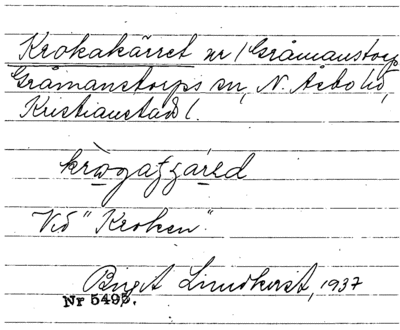 Krokakärret nr 1 Gråmanstorp
Gråmanstorps sn, N. Åsbo hd,
Kristianstads l.
Vid "Kroken".
Birgit Lindkvist, 1937
Nr 5493.